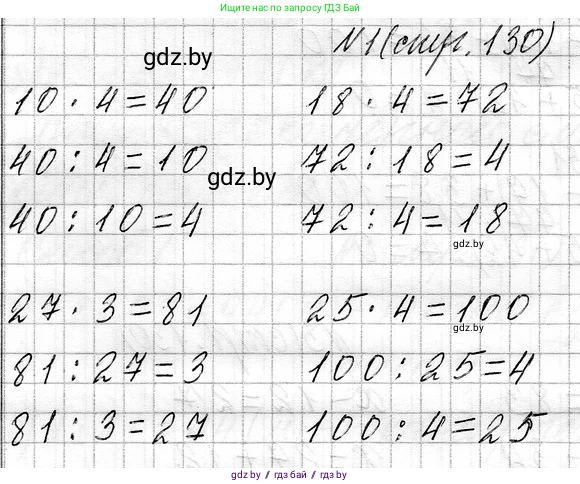 Ищите нас по запросу ГДЗ Бай
№1 (стр. 130)
gdz.by
10 · 4 = 40 18 · 4 = 72
40 : 4 = 10 72 : 18 = 4
gdz.by
40 : 10 = 4 72 : 4 = 18
gdz.by
27 · 3 = 81 25 · 4 = 100
gdz.by
81 : 27 = 3 100 : 25 = 4
81 : 3 = 27 100 : 4 = 25
gdz.by // gdz.bay // gdz.by